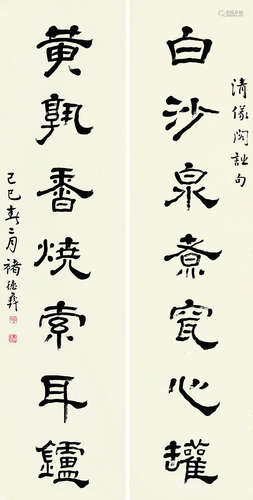 清儀閣联句
白沙泉煮窑心罐
黄孰香烧索耳鑪
己巳春二月褚德彝